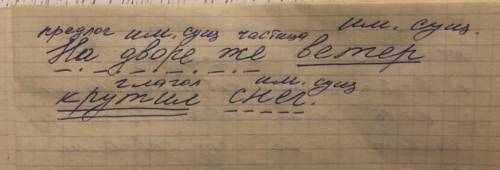 предлог им. сущ частица им. сущ.
На дворе же ветер
глагол им. сущ.
крутил снег.